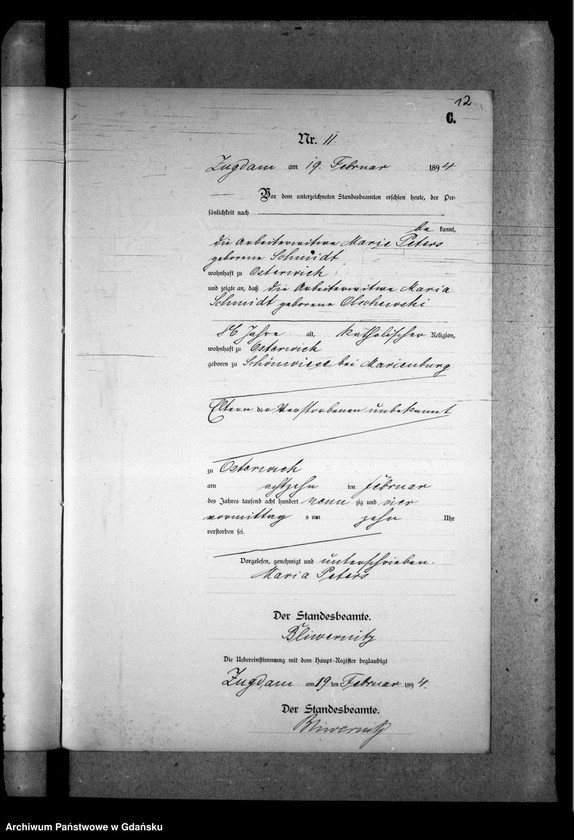 12
C.
Nr. 11
Zugdam am 19. Februar 1894
Vor dem unterzeichneten Standesbeamten erschien heute, der Per-
sönlichkeit nach
be kannt,
die Arbeiterwitwe Marie Peters
geborene Schmidt
wohnhaft zu Osterwick
und zeigte an, daß die Arbeiterwitwe Maria
Schmidt geborene Olschewski
Jahre alt, katholischer Religion,
wohnhaft zu Osterwick
geboren zu Schönwiese bei Marienburg
Eltern der Verstorbenen unbekannt
zu Osterwick
am achtzehn ten Februar
des Jahres tausend acht hundert neun zig und vier
vormittag s um zehn Uhr
verstorben sei.
Vorgelesen, genehmigt und unterschrieben.
Maria Peters
Der Standesbeamte.
Bliwernitz
Die Uebereinstimmung mit dem Haupt-Register beglaubigt
Zugdam am 19 ten Februar 1894.
Der Standesbeamte.
Bliwernitz
Archiwum Państwowe w Gdańsku